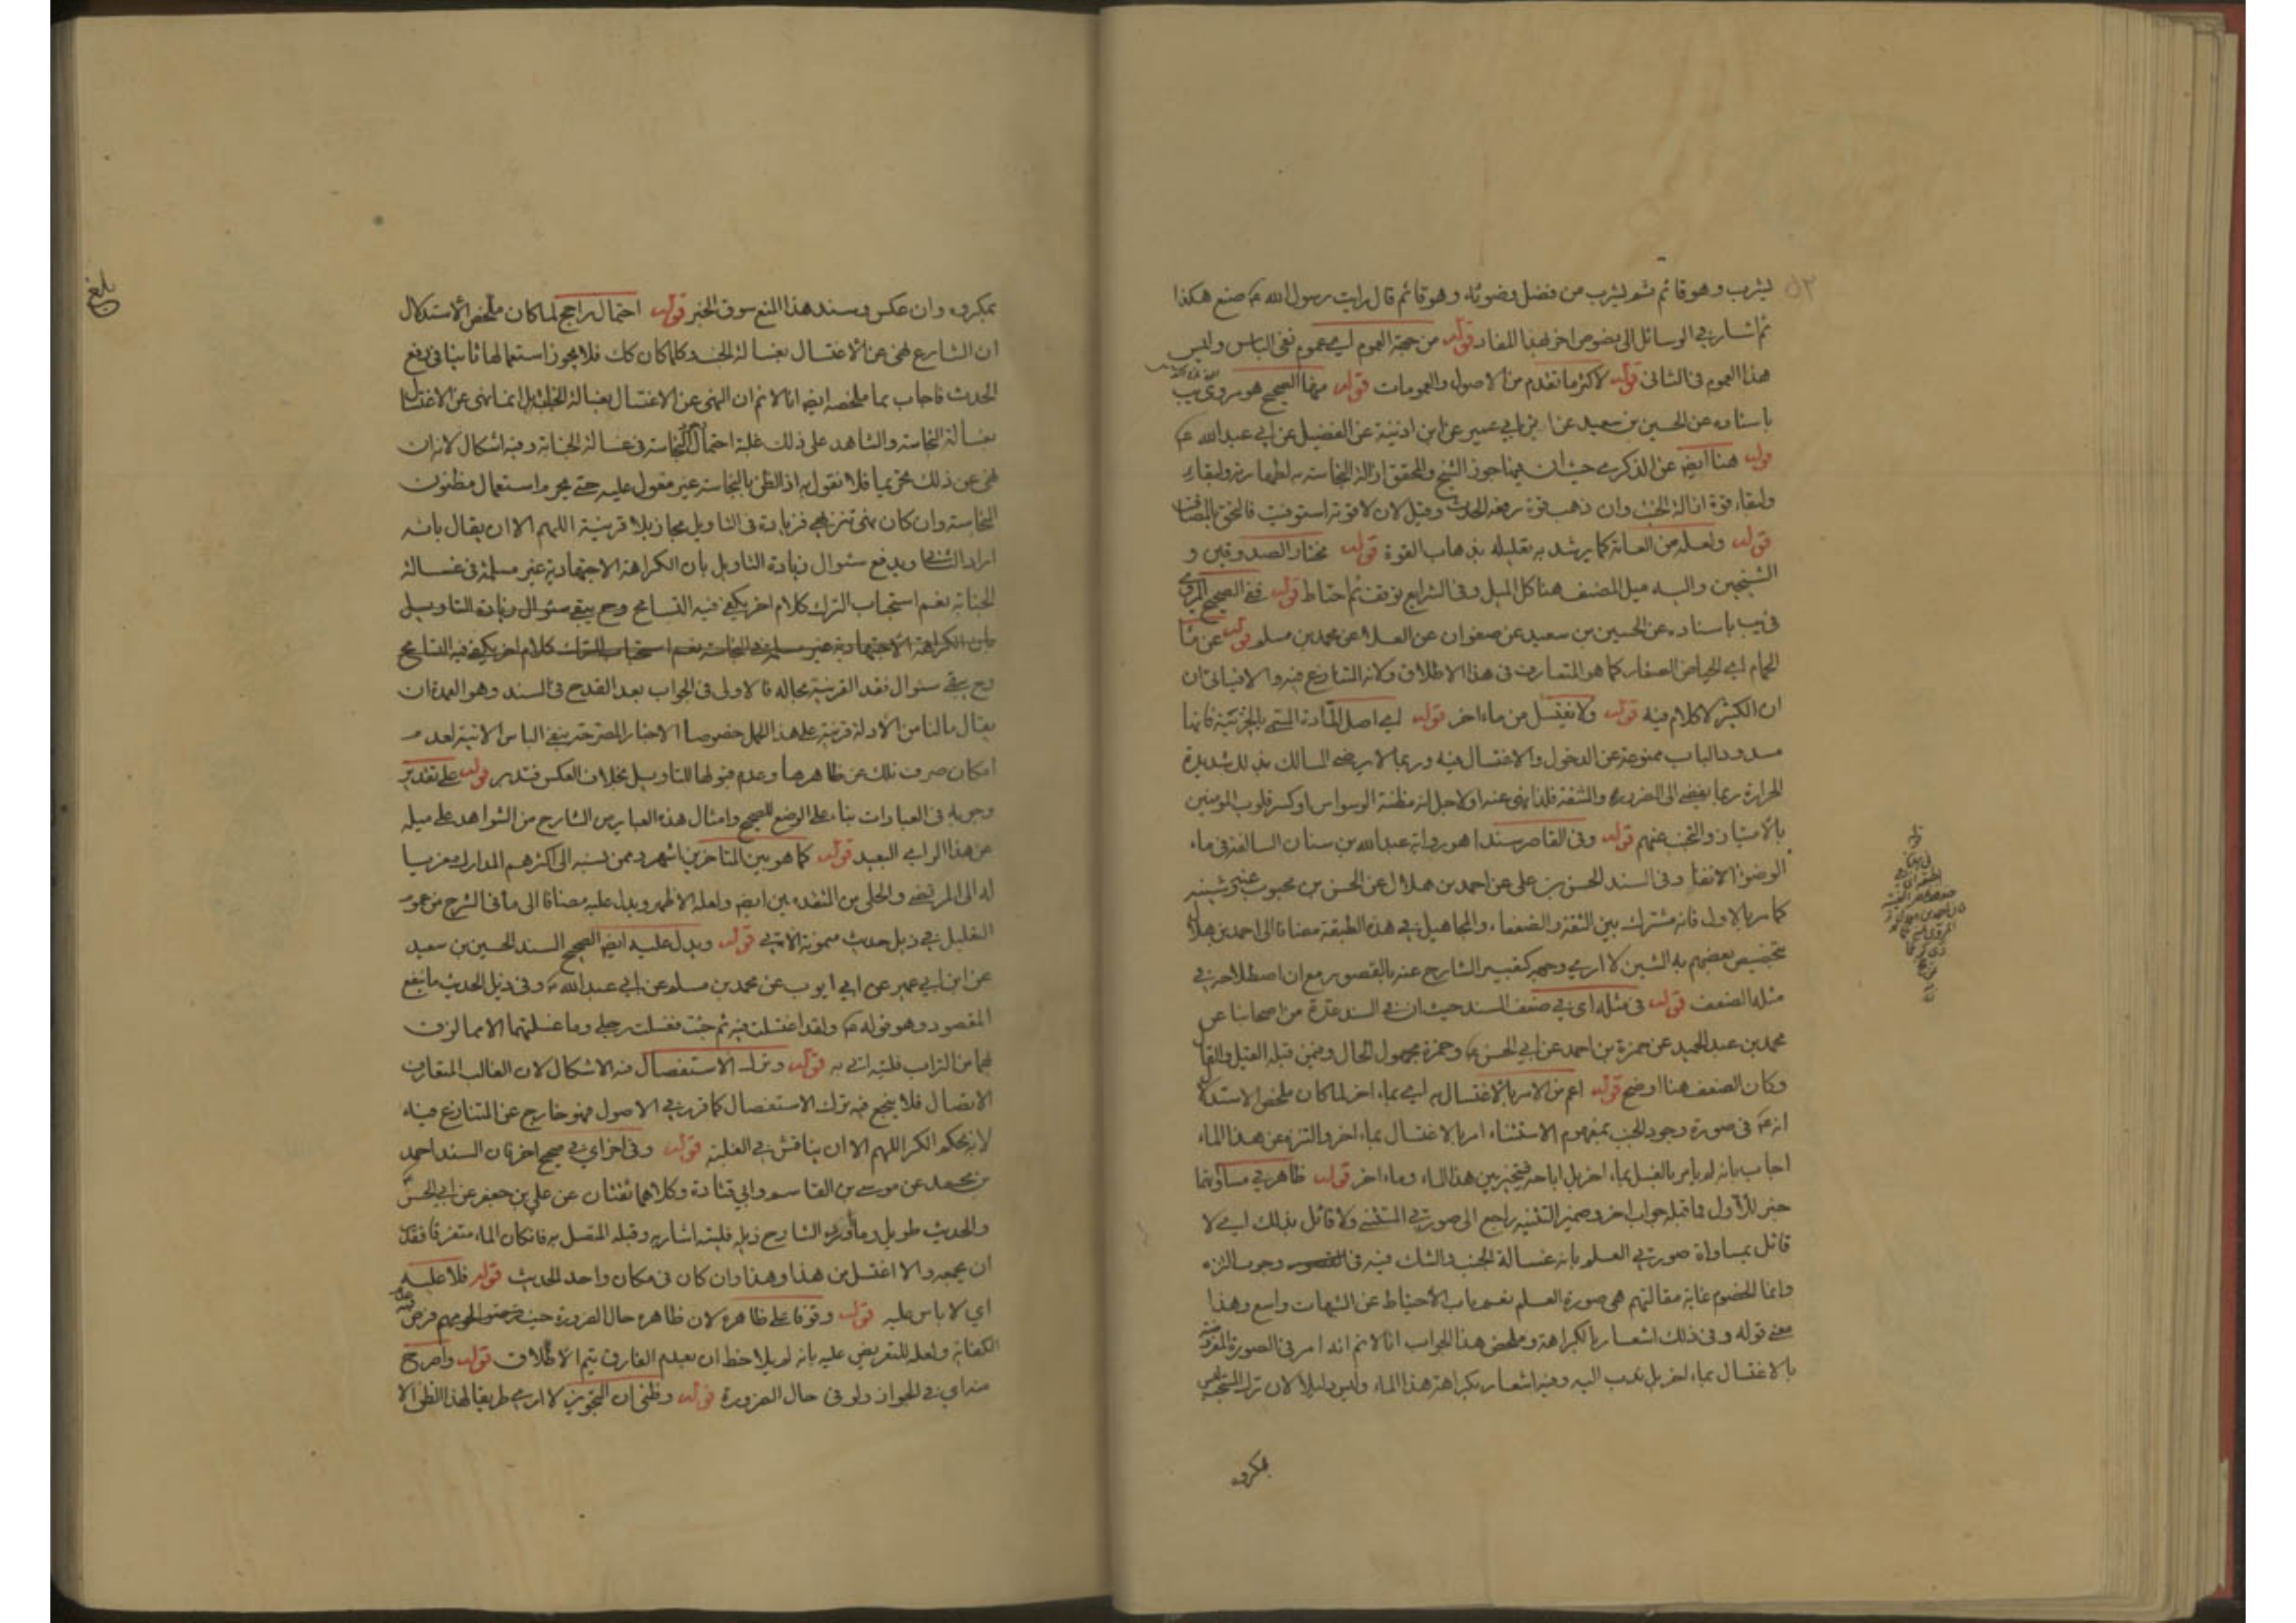 ٥٢
يشرب وهو قائم ثم يشرب من فضل وضوئه وهو قائم قال رايت رسول الله ص صنع هكذا
ثم اشار في الوسائل الى نصوص اخر بهذا المفاد قوله من جهة العموم اي عموم نفي الباس وليس
هذا العموم في الثاني قوله لاكثر ما تقدم من الاصول والعمومات قوله منها الصحيح هو مروي يب
باسناده عن الحسين بن سعيد عن ابن ابي عمير عن ابن اذينة عن الفضيل عن ابي عبد الله ع
قوله هنا ايضا عن الذكرى حيث ان فيها جوز الشيخ والمحقق ازالة النجاسة به لطهارته ولبقاء
ولبقاء قوة ازالة الخبث وان ذهب قوة رفعه الحدث وقيل لا لان قوته استوفيت فالحق بالمضاف
قوله ولعله من العامة كما يرشد به تعليله بذهاب القوة قوله مختار الصدوقين و
الشيخين واليه ميل المصنف هنا كل الميل وفي الشرايع توقف ثم احتاط قوله ففي الصحيح المروي
في يب باسناده عن الحسين بن سعيد عن صفوان عن العلا عن محمد بن مسلم قوله عن ماء
الحمام اي الحياض الصغار كما هو المتعارف في هذا الاطلاق ولانه المتنازع فيه والا فياتي ان
ان الكثير لا كلام فيه قوله ولا تغتسل من ماء اخر قوله اي اصل المادة المسمى بالخزينة فانها
مسدود الباب ممنوعة عن الدخول والاغتسال فيه وربما لا يرضى المالك بذلك شديدة
الحرارة ربما يفضي الى الضرورة والمشقة فلذا نهى عنه او لاجل انه مظنة الوسواس او كسر قلوب المومنين
بالامتياز والتجنب عنهم قوله وفي القاصر سندا هو رواية عبد الله بن سنان السالفة في ماء
الوضوء الانفا وفي السند الحسن بن علي عن احمد بن هلال عن الحسن بن محبوب
كما مر بالاول فانه مشترك بين الثقة والضعفاء والمجاهيل في هذه الطبقة مضافا الى احمد بن هلال
تخصيص بعضهم به الشين لا ارى وجهه كتعبير الشارح عنه بالقصور مع ان اصطلاحه في
مثله الضعف قوله في مثله اي في ضعف السند حيث ان في السند عدة من اصحابنا عن
محمد بن عبد الحميد عن حمزة بن احمد عن ابي الحسن ع وحمزة مجهول الحال وفيمن قبله القيل والقال
وكان الضعف هنا اوضح قوله اعم من الامر بالاغتسال به اي بماء اخر لما كان ملخص الاستدلال
انه ع في صورة وجود الجنب بمفهوم الاستثناء امر بالاغتسال بماء اخر والتنزه عن هذا الماء
اجاب بانه لم يامر بالغسل بماء اخر بل اباحه فيتخير بين هذا الماء وماء اخر قوله ظاهر في مساواتهما
خبر للاول فما قبله جواب اخر وضمير التثنيه راجع الى صورتي المستثنى ولا قائل بذلك اي لا
قائل بمساواة صورتي العلم بانه غسالة الجنب والشك فيه في وجوب التنزه
وانما للخصوم غاية مقالتهم هي صورة العلم نعم باب الاحتياط عن الشبهات واسع وهذا
معنى قوله وفي ذلك اشعار بالكراهة وملخص هذا الجواب انا لا نم انه امر في الصورة المفروضة
بالاغتسال بماء اخر بل ندب اليه وفيه اشعار بكراهة هذا الماء وليس دليلا لان ترك المستحب ليس
بمكروه
بمكروه وان عكس وسند هذا المنع سوق الخبر قوله احتمال راجح لما كان ملخص الاستدلال
ان الشارع نهى عن الاغتسال بغسالة الجنب وكلما كان كك فلا يجوز استعمالها ثانيا في رفع
الحدث فاجاب بما ملخصه ايضا انا لا نم ان النهي عن الاغتسال بغسالة الجنب بل انما نهى عن الاغتسال
بغسالة النجاسة والشاهد على ذلك غلبة احتمال النجاسة في غسالة الجنابة وفيه اشكال لانه ان
نهى عن ذلك تحريما فلا نقول به اذ الظن بالنجاسة غير معول عليه حتى يحرم استعمال مظنون
النجاسة وان كان نهي تنزيهي فزيادة في التاويل مجاز بلا قرينة اللهم الا ان يقال بانه
اراد الثاني ويدفع سئوال زيادة التاويل بان الكراهة الاجتهادية غير مسلمة في غسالة
الجنابة نعم استحباب الترك كلام اخر يكفي فيه التسامح وح يبقى سئوال زيادة التاويل
بان الكراهة الاجتهادية غير مسلمة في الجنابة نعم استحباب الترك كلام اخر يكفي فيه التسامح
وح يبقى سئوال فقد القرينة بحاله فالاولى في الجواب بعد القدح في السند وهو العمدة ان
يقال ما لنا من الادلة قرينة على هذا الحمل خصوصا الاخبار المصرحة بنفي الباس الاتية لعدم
امكان صرف تلك عن ظاهرها وعدم قبولها للتاويل بخلاف العكس فتدبر قوله على تقدير
وجوبه في العبادات بناء على الوضع للصحيح وامثال هذه العباير من الشارح من الشواهد على ميله
عن هذا الراي البعيد قوله كما هو بين المتاخرين اشهر وممن نسبه الى اكثرهم المدارك معزيا
له الى المرتضى والحلي من المتقدمين ايضا ولعله الاظهر ويدل عليه مضافا الى ما في الشرح من عموم
التعليل في ذيل حديث ميمونة الاتي قوله ويدل عليه ايضا الصحيح السند الحسين بن سعيد
عن ابن ابي عمير عن ابي ايوب عن محمد بن مسلم عن ابي عبد الله ع وفي ذيل الحديث ما ينفع
المقصود وهو قوله ع ولقد اغتسلت فيه ثم جئت فغسلت رجلي وما غسلتهما الا مما لزق
بهما من التراب فليتنبه به قوله وترك الاستفصال فيه الاشكال لان الغالب المتعارف
الاتصال فلا ينجع فيه ترك الاستفصال كما قرر في الاصول فهو خارج عن المتنازع فيه
لانه بحكم الكر اللهم الا ان يناقش في الغلبة قوله وفي اخر اي في صحيح اخر فان السند احمد
بن محمد عن موسى بن القاسم وابي قتادة وكلاهما ثقتان عن علي بن جعفر عن ابي الحسن ع
والحديث طويل وما ذكره الشارح ذيله فليتنبه اشار به وقبله المتصل به فان كان الماء متفرقا فقدر
ان يجمعه والا اغتسل من هذا وهذا وان كان في مكان واحد الحديث قوله فلا عليه
اي لا باس عليه قوله وقوفا على ظاهره لان ظاهره حال الضرورة
الكفاية ولعله للتعريض عليه بانه لم يلاحظ ان بعدم الفارق يتم الاطلاق قوله واصرح
منه اي في الجواز ولو في حال الضرورة قوله وظني ان التجويز لا ارى طريقا لهذا الظن الا
بلغ